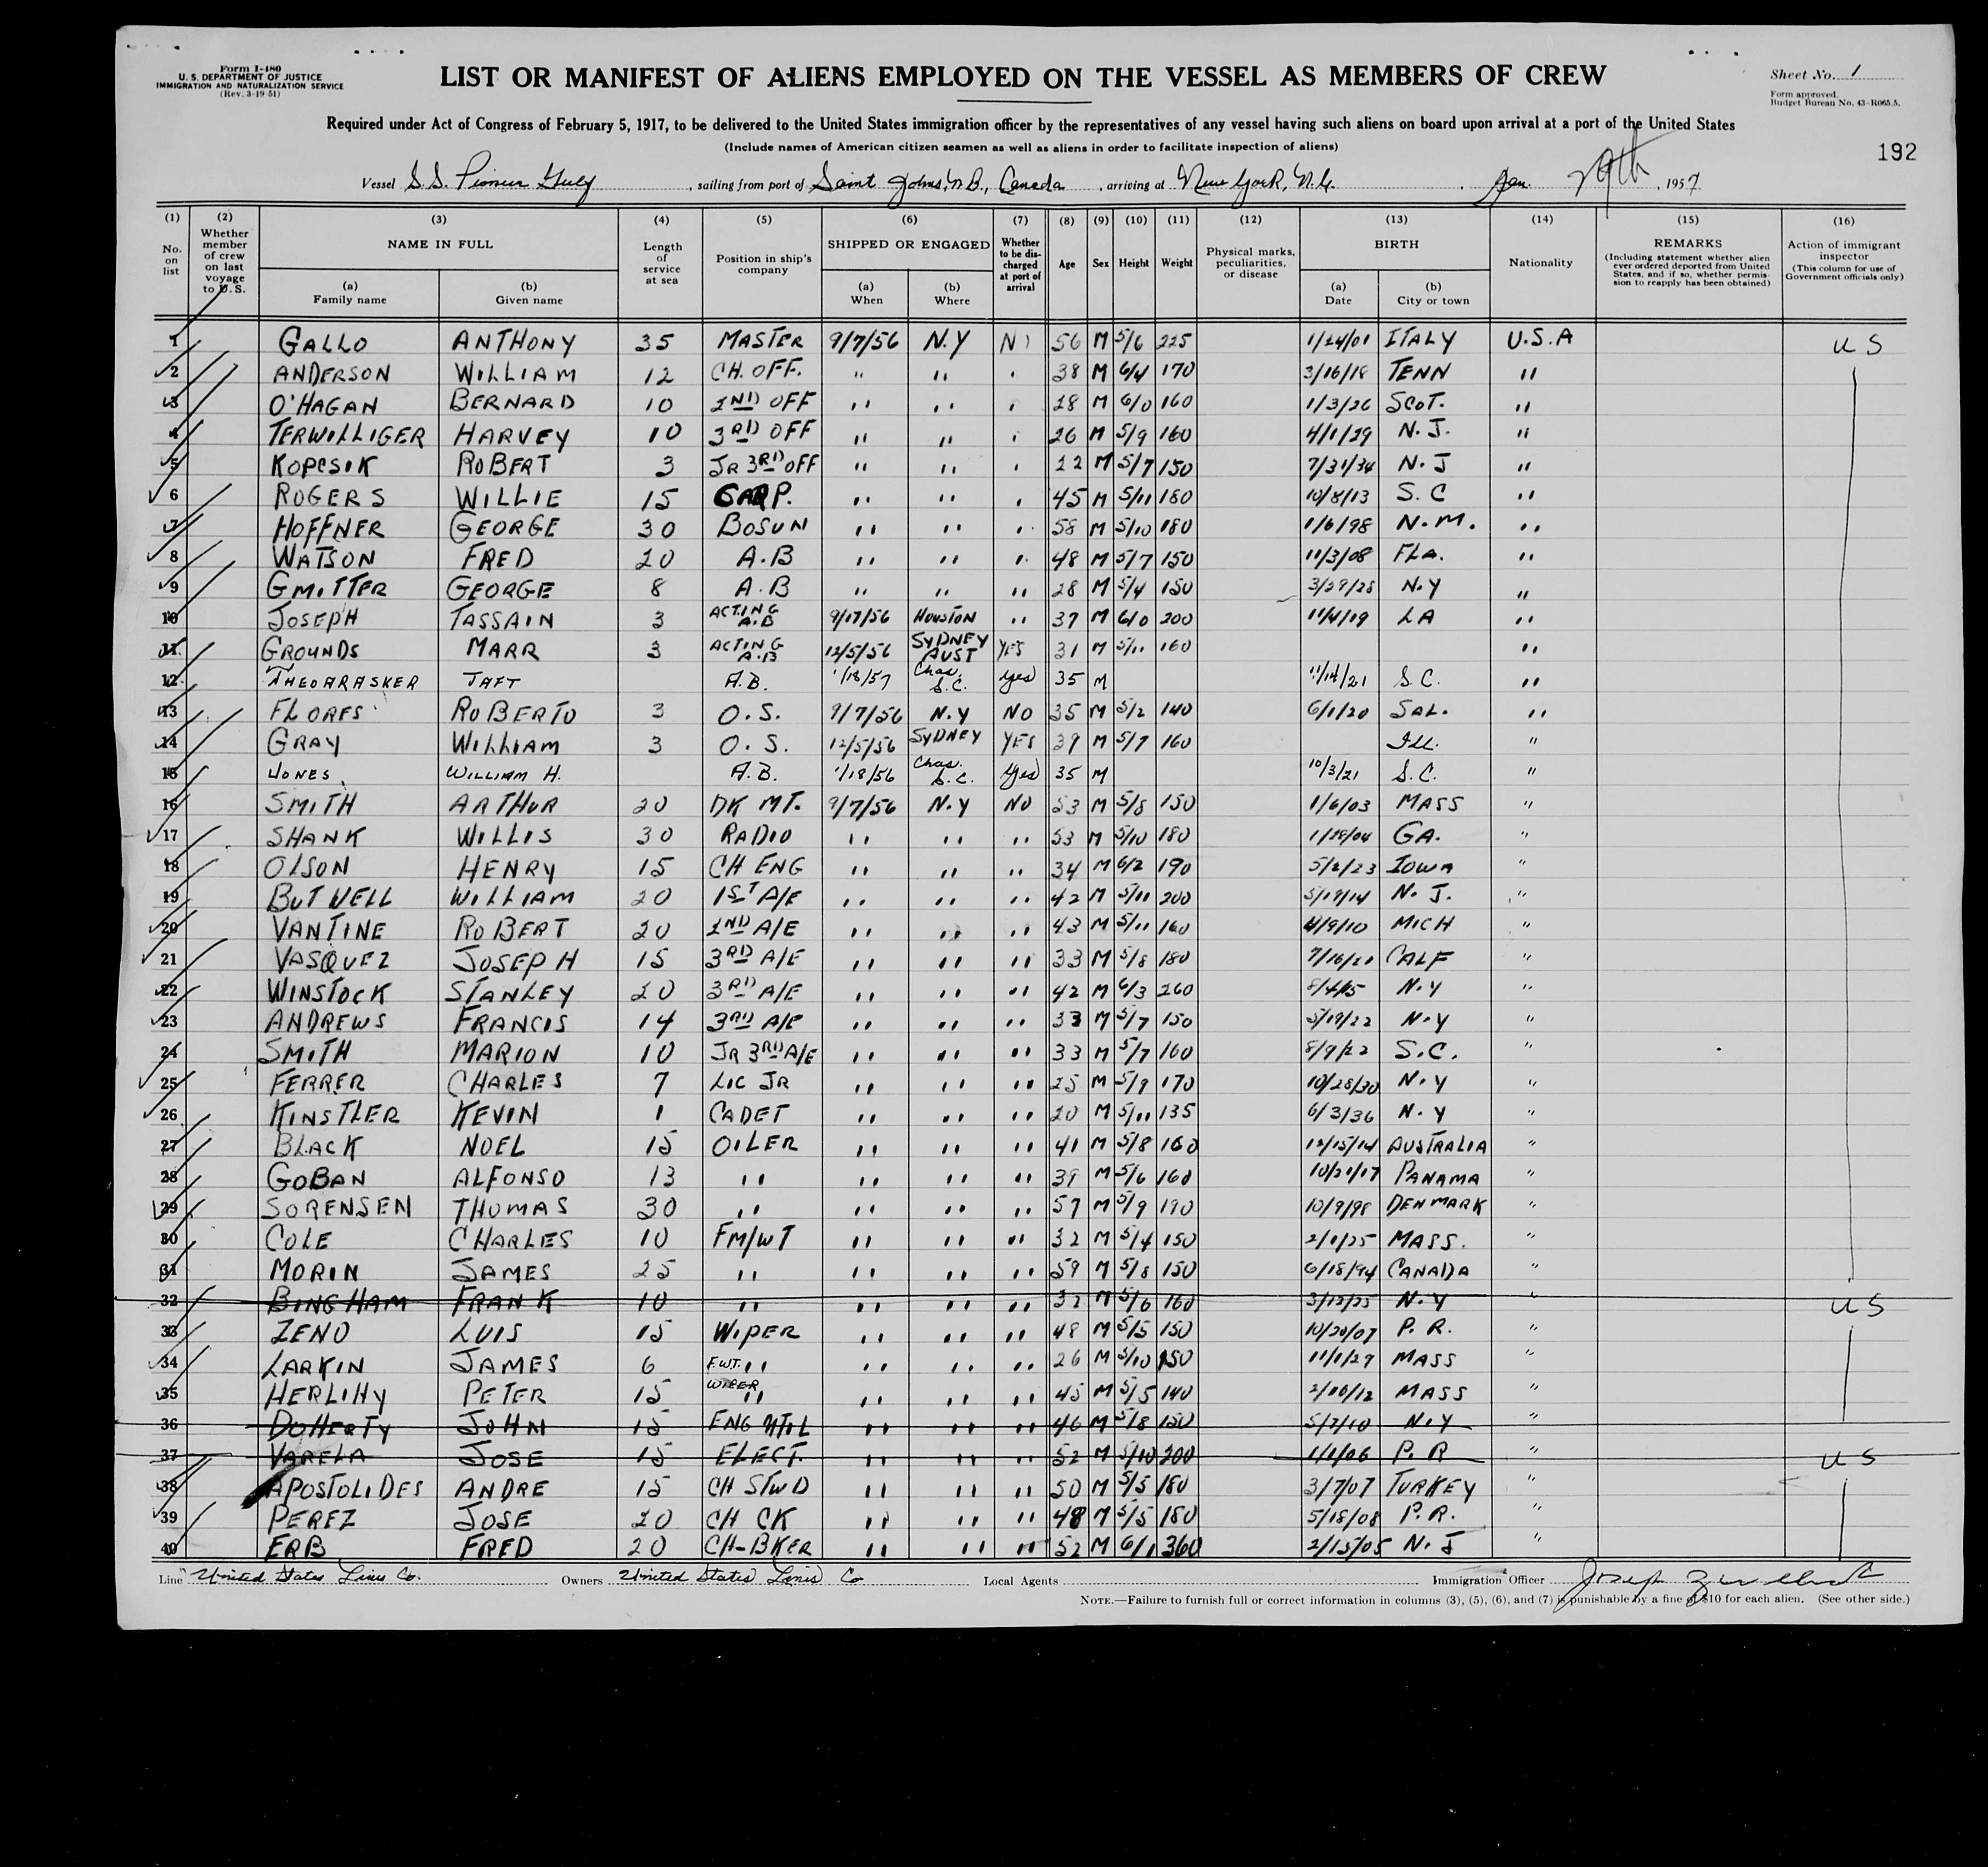 Form I-480
U. S. DEPARTMENT OF JUSTICE
IMMIGRATION AND NATURALIZATION SERVICE
(Rev. 3-19-51)
LIST OR MANIFEST OF ALIENS EMPLOYED ON THE VESSEL AS MEMBERS OF CREW
Sheet No. 1
Form approved.
Budget Bureau No. 43-R065.5.
Required under Act of Congress of February 5, 1917, to be delivered to the United States immigration officer by the representatives of any vessel having such aliens on board upon arrival at a port of the United States
(Include names of American citizen seamen as well as aliens in order to facilitate inspection of aliens)
192
Vessel S.S. Pioneer , sailing from port of Saint Johns, N.B., Canada , arriving at New York, N.Y. , Jan. 29th , 1957
(1) No. on list (2) Whether member of crew on last voyage to U.S. (3) NAME IN FULL (a) Family name (b) Given name (4) Length of service at sea (5) Position in ship's company (6) SHIPPED OR ENGAGED (a) When (b) Where (7) Whether to be discharged at port of arrival (8) Age (9) Sex (10) Height (11) Weight (12) Physical marks, peculiarities, or disease (13) BIRTH (a) Date (b) City or town (14) Nationality (15) REMARKS (Including statement whether alien ever ordered deported from United States, and if so, whether permission to reapply has been obtained) (16) Action of immigrant inspector (This column for use of Government officials only)
1 GALLO ANTHONY 35 MASTER 9/7/56 N.Y NO 56 M 5/6 225 1/24/01 ITALY U.S.A US
2 ANDERSON WILLIAM 12 CH. OFF. " " " 38 M 6/4 170 3/16/18 TENN "
3 O'HAGAN BERNARD 10 2ND OFF " " " 28 M 6/0 160 1/3/26 SCOT. "
4 TERWILLIGER HARVEY 10 3RD OFF " " " 26 M 5/9 160 4/1/29 N.J. "
5 KOPCSIK ROBERT 3 JR 3RD OFF " " " 22 M 5/7 150 7/31/34 N.J "
6 ROGERS WILLIE 15 CARP. " " " 45 M 5/11 180 10/8/13 S.C "
7 HOFFNER GEORGE 30 BOSUN " " " 58 M 5/10 180 1/6/98 N.M. "
8 WATSON FRED 20 A.B " " " 48 M 5/7 150 11/3/08 FLA. "
9 GMITTER GEORGE 8 A.B " " " 28 M 5/4 150 3/29/28 N.Y "
10 JOSEPH TASSAIN 3 ACTING A.B 9/17/56 HOUSTON " 37 M 6/0 200 11/4/19 LA "
11 GROUNDS MARR 3 ACTING A.B 12/5/56 SYDNEY AUST YES 31 M 5/11 160 "
12 THEOARASKER TAFT A.B. 1/18/57 Chas. S.C. Yes 35 M 11/14/21 S.C. "
13 FLORES ROBERTO 3 O.S. 9/7/56 N.Y NO 35 M 5/2 140 6/1/20 SAL. "
14 GRAY WILLIAM 3 O.S. 12/5/56 SYDNEY YES 29 M 5/7 160 Ill. "
15 JONES WILLIAM H. A.B. 1/18/56 Chas. S.C. Yes 35 M 10/3/21 S.C. "
16 SMITH ARTHUR 20 DK MT. 9/7/56 N.Y NO 53 M 5/8 150 1/6/03 MASS "
17 SHANK WILLIS 30 RADIO " " " 53 M 5/10 180 1/28/04 GA. "
18 OLSON HENRY 15 CH ENG " " " 34 M 6/2 190 5/2/23 IOWA "
19 BUTWELL WILLIAM 20 1ST A/E " " " 42 M 5/11 200 5/19/14 N.J. "
20 VANTINE ROBERT 20 2ND A/E " " " 43 M 5/11 160 4/9/10 MICH "
21 VASQUEZ JOSEPH 15 3RD A/E " " " 33 M 5/8 180 CALF "
22 WINSTOCK STANLEY 20 3RD A/E " " " 42 M 6/3 260 N.Y "
23 ANDREWS FRANCIS 14 3RD A/E " " " 33 M 5/7 150 5/19/22 N.Y "
24 SMITH MARION 10 JR 3RD A/E " " " 33 M 5/7 160 8/9/22 S.C. "
25 FERRER CHARLES 7 LIC JR " " " 25 M 5/9 170 10/28/30 N.Y "
26 KINSTLER KEVIN 1 CADET " " " 20 M 5/11 135 6/3/36 N.Y "
27 BLACK NOEL 15 OILER " " " 41 M 5/8 160 12/15/14 AUSTRALIA "
28 GOBAN ALFONSO 13 " " " " 39 M 5/6 160 10/21/17 PANAMA "
29 SORENSEN THOMAS 30 " " " " 57 M 5/9 190 10/9/98 DENMARK "
30 COLE CHARLES 10 FM/WT " " " 32 M 5/4 150 2/1/25 MASS. "
31 MORIN JAMES 25 " " " " 59 M 5/8 150 6/18/94 CANADA "
32 BINGHAM FRANK 10 " " " " 32 M 5/6 160 3/12/25 N.Y " US
33 ZENO LUIS 15 WIPER " " " 48 M 5/5 150 10/20/07 P.R. "
34 LARKIN JAMES 6 F.W.T. " " " " 26 M 5/10 150 11/1/29 MASS "
35 HERLIHY PETER 15 WIPER " " " " 45 M 5/5 140 2/10/12 MASS "
36 DOHERTY JOHN 15 ENG " " " 46 M 5/8 150 5/7/10 N.Y "
37 VARELA JOSE 15 ELECT. " " " 52 M 5/10 200 1/1/06 P.R " US
38 APOSTOLIDES ANDRE 15 CH STWD " " " 50 M 5/5 180 3/7/07 TURKEY "
39 PEREZ JOSE 20 CH CK " " " 48 M 5/5 180 5/18/08 P.R. "
40 ERB FRED 20 CH-BKER " " " 52 M 6/1 360 2/15/05 N.J "
Line United States Lines Co. Owners United States Lines Co Local Agents Immigration Officer Joseph
NOTE.—Failure to furnish full or correct information in columns (3), (5), (6), and (7) is punishable by a fine of $10 for each alien. (See other side.)